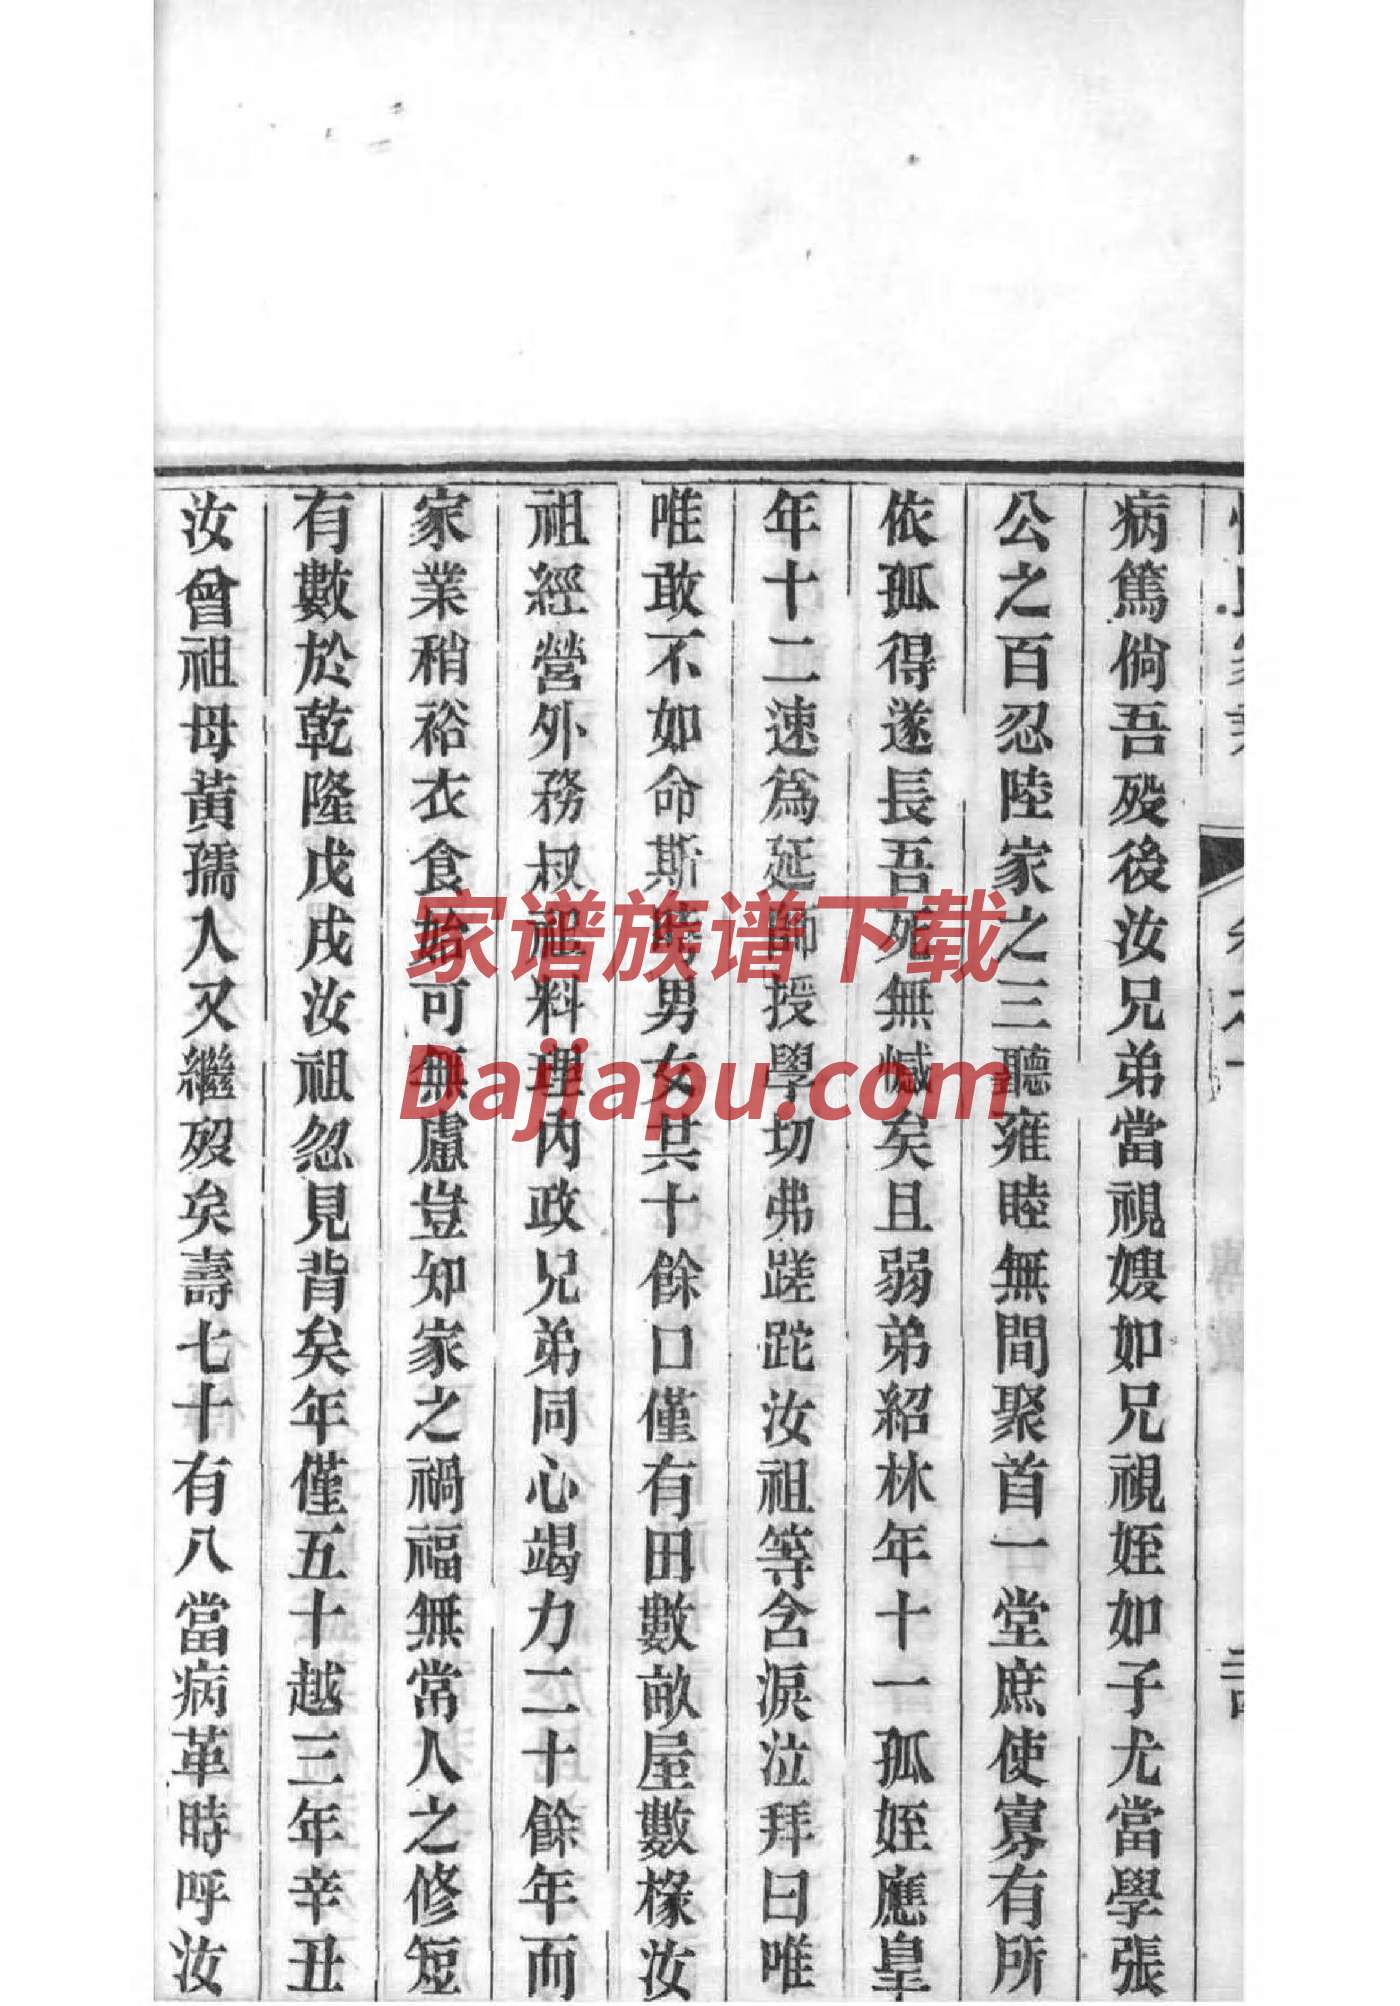 病篤倘吾歿後汝兄弟當視嫂如兄視姪如子尤當學張
公之百忍陸家之三聽雍睦無間聚首一堂庶使寡有所
依孤得遂長吾死無憾矣且弱弟紹林年十一孤姪應皇
年十二速爲延師授學切弗蹉跎汝祖等含淚泣拜曰唯
唯敢不如命斯時男女共十餘口僅有田數畝屋數椽汝
祖經營外務叔祖料理內政兄弟同心竭力二十餘年而
家業稍裕衣食始可無慮豈知家之禍福無常人之修短
有數於乾隆戊戌汝祖忽見背矣年僅五十越三年辛丑
汝曾祖母黃孺人又繼歿矣壽七十有八當病革時呼汝
家谱族谱下载
Dajiapu.com